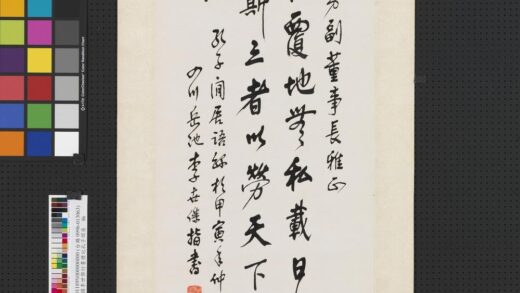 副董事長雅正
覆地無私載日
斯三者以勞天下
孔子閒居語錄於甲寅年仲
四川岳池李世傑指書